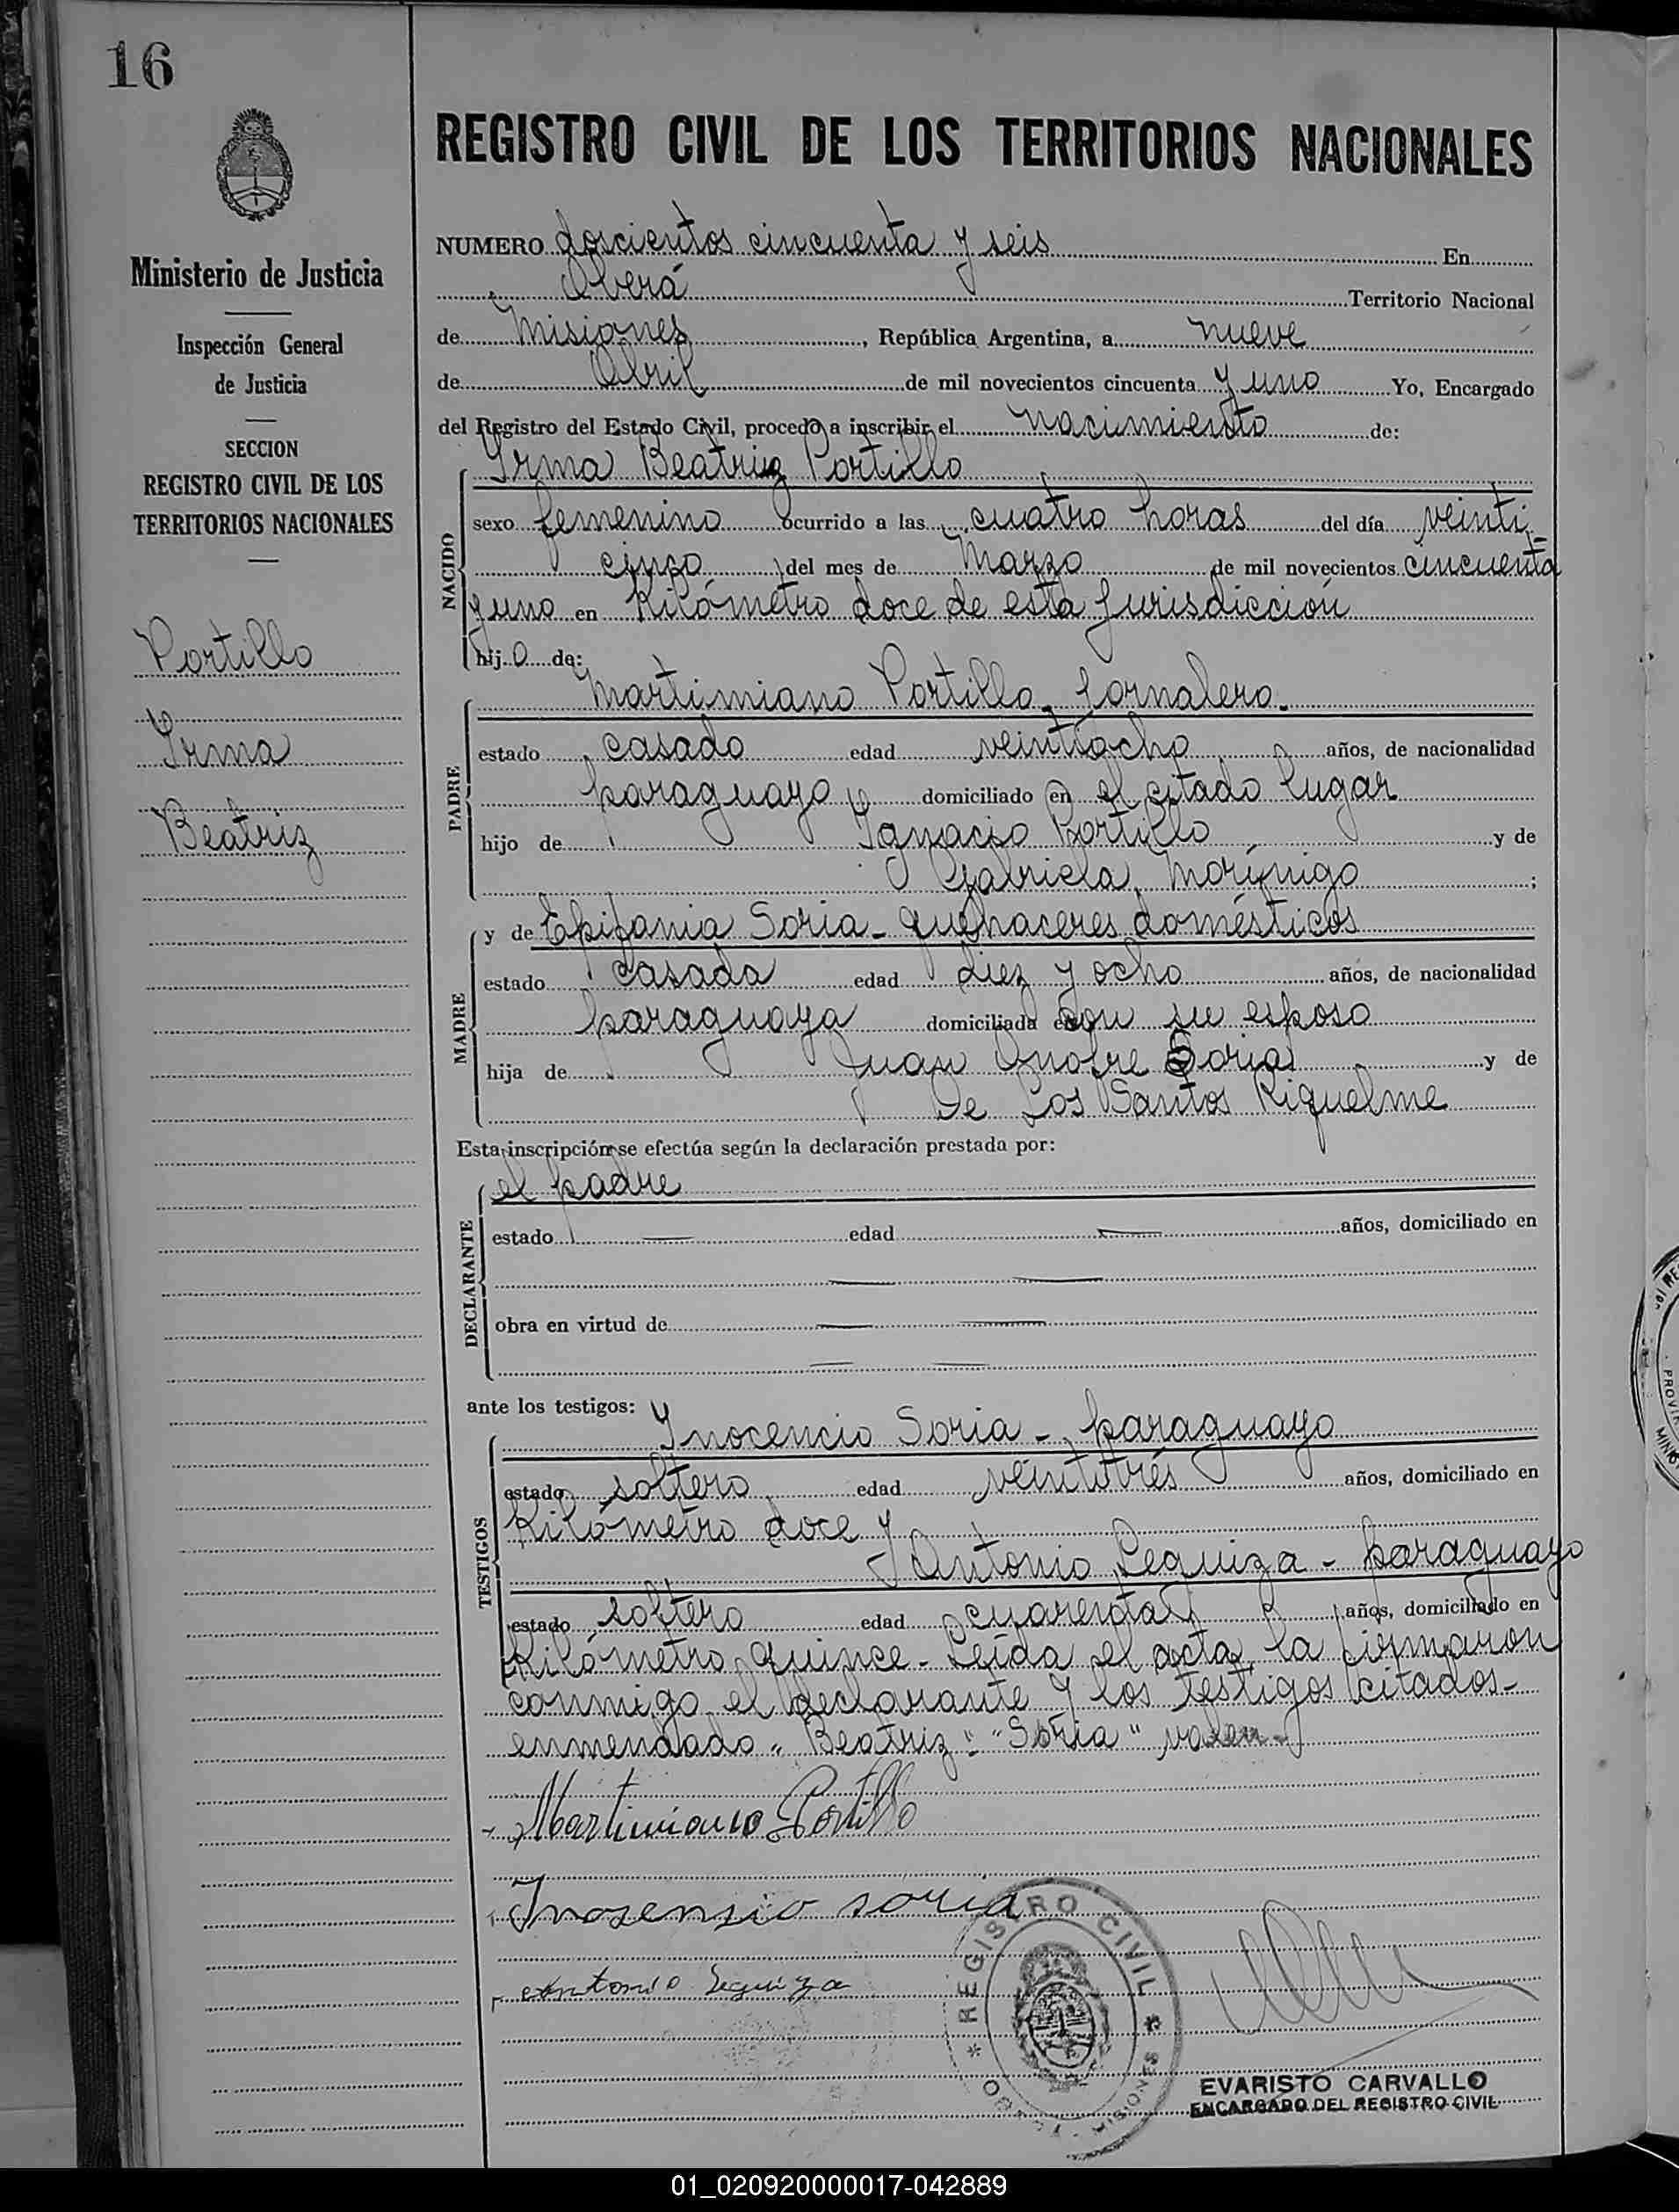 16
REGISTRO CIVIL DE LOS TERRITORIOS NACIONALES
Ministerio de Justicia
Inspección General
de Justicia
SECCION
REGISTRO CIVIL DE LOS
TERRITORIOS NACIONALES
Portillo
Irma
Beatriz
NUMERO doscientos cincuenta y seis En
Oberá Territorio Nacional
de Misiones, República Argentina, a nueve
de Abril de mil novecientos cincuenta y uno Yo, Encargado
del Registro del Estado Civil, procedo a inscribir el nacimiento de:
Irma Beatriz Portillo
NACIDO
sexo femenino ocurrido a las cuatro horas del día veinti-
cinco del mes de Marzo de mil novecientos cincuenta
y uno en Kilómetro doce de esta Jurisdicción
hij a de:
PADRE
Martimiano Portillo - Jornalero.
estado casado edad veintiocho años, de nacionalidad
paraguayo domiciliado en el citado lugar
hijo de Ignacio Portillo y de
Gabriela Morínigo ;
MADRE
y de Epifania Soria - quehaceres domésticos
estado casada edad diez y ocho años, de nacionalidad
paraguaya domiciliada en con su esposo
hija de Juan Onofre Soria y de
De Los Santos Riquelme
Esta inscripción se efectúa según la declaración prestada por:
DECLARANTE
el padre
estado — edad — años, domiciliado en
— —
obra en virtud de — —
— —
ante los testigos:
TESTIGOS
Inocencio Soria - paraguayo
estado soltero edad veintitrés años, domiciliado en
Kilómetro doce y
Antonio Leguiza - paraguayo
estado soltero edad cuarenta años, domiciliado en
Kilómetro quince - Leída el acta, la firmaron
conmigo el declarante y los testigos citados -
enmendado "Beatriz" "Soria" valen -
Martimiano Portillo
Inosensio soria
Antonio Leguiza
REGISTRO CIVIL
EVARISTO CARVALLO
ENCARGADO DEL REGISTRO CIVIL
01_020920000017-042889